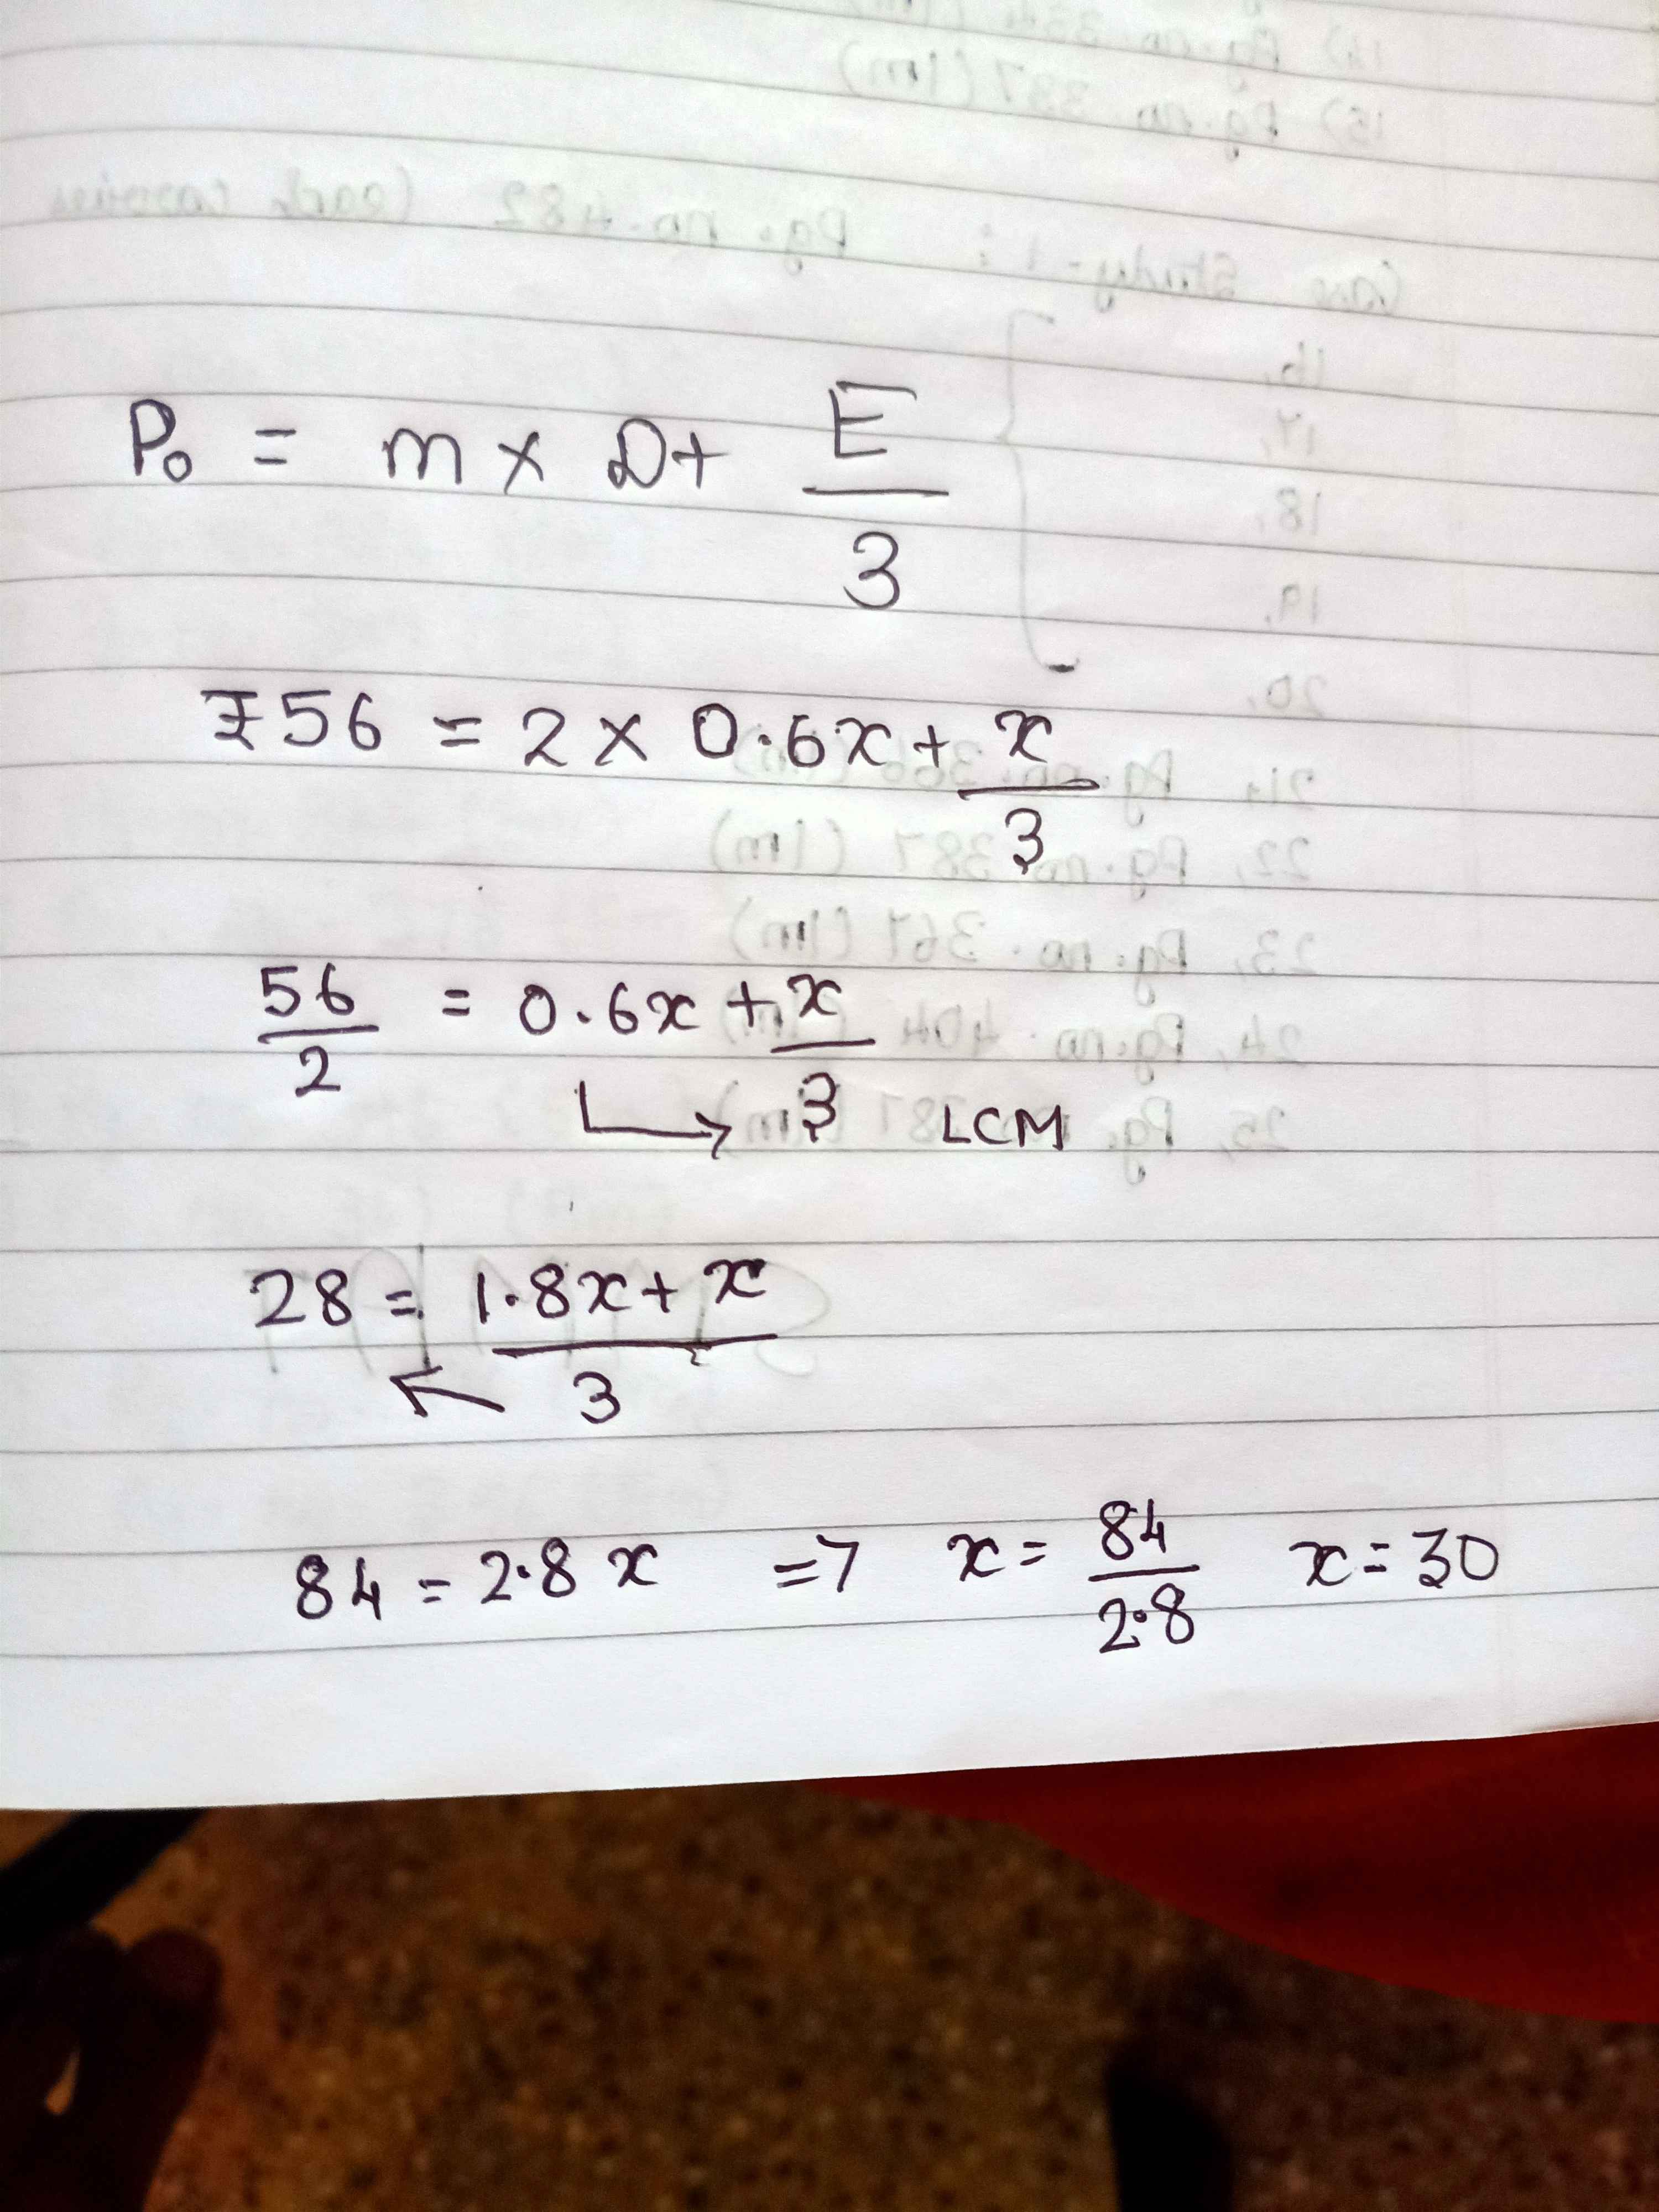 P₀ = m × D + E/3
₹56 = 2 × 0.6x + x/3
56/2 = 0.6x + x/3
LCM
28 = 1.8x + x/3
84 = 2.8x => x = 84/2.8 x = 30